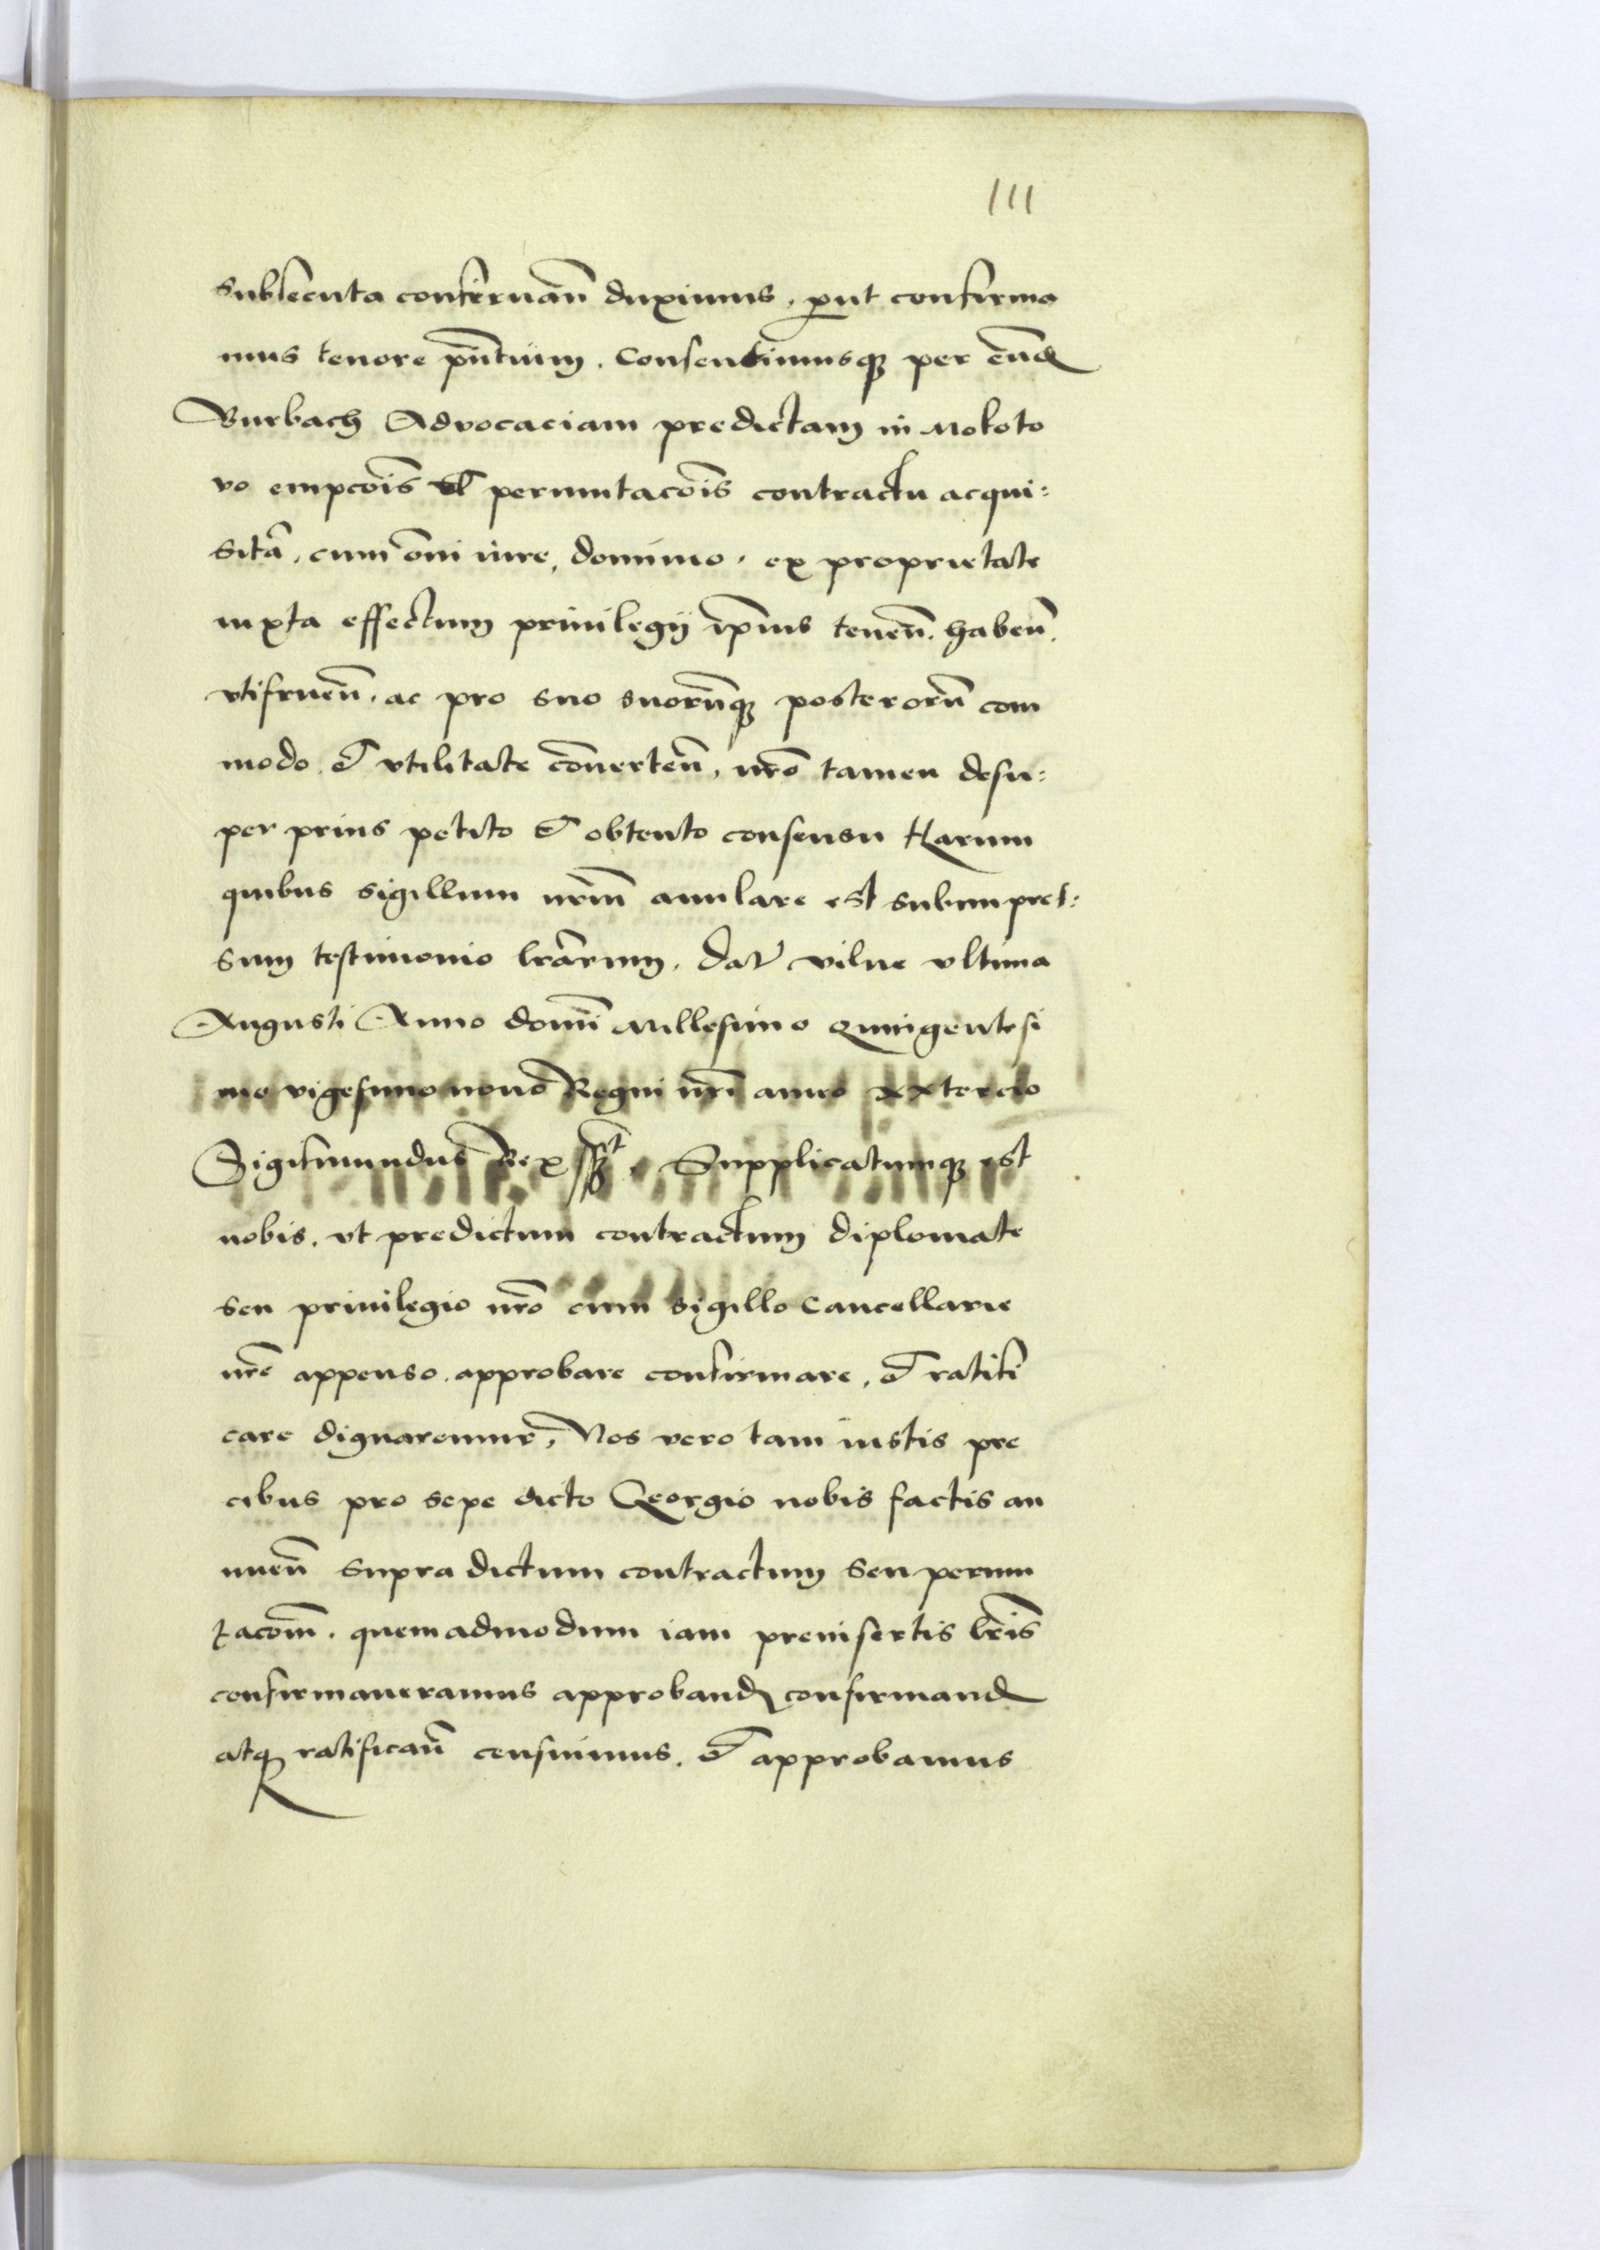 111
Subsecuta confirmañ duximus, put confirma
mus tenore pñtium. Consentimusq; per eund
Burbach Advocaciam predictam in Mokoto
vo empcõis vl permutacõis contractu acqui:
sitã, cum õni iure, dominio, ex proprietate
iuxta effectum privilegij ipĩus teneñ. habeñ.
vtifrueñ. ac pro suo suorũq; posterorũ com
modo et vtilitate cõverteñ, nrõ tamen desu:
per prius petito et obtento consensu Harum
quibus sigillum nrũm anulare est subimpres:
sum testimonio lrãrum. Dat Vilne vltima
Augusti Anno domĩ Millesimo Quingentesi
mo vigesimo nono Regni nrĩ anno XXtercio
Sigismundus Rex sspt. Supplicatumq; est
nobis, vt predictum contractum diplomate
seu privilegio nrõ cum sigillo Cancellarie
nrẽ appenso approbare confirmare, et ratifi
care dignaremur, Nos vero tam iustis pre
cibus pro sepe dicto Georgio nobis factis an
nueñ supra dictum contractum seu permu
tacõm. quemadmodum iam preinsertis lrĩs
confirmaveramus approband confirmand
atq; ratificañ censuimus. et approbamus